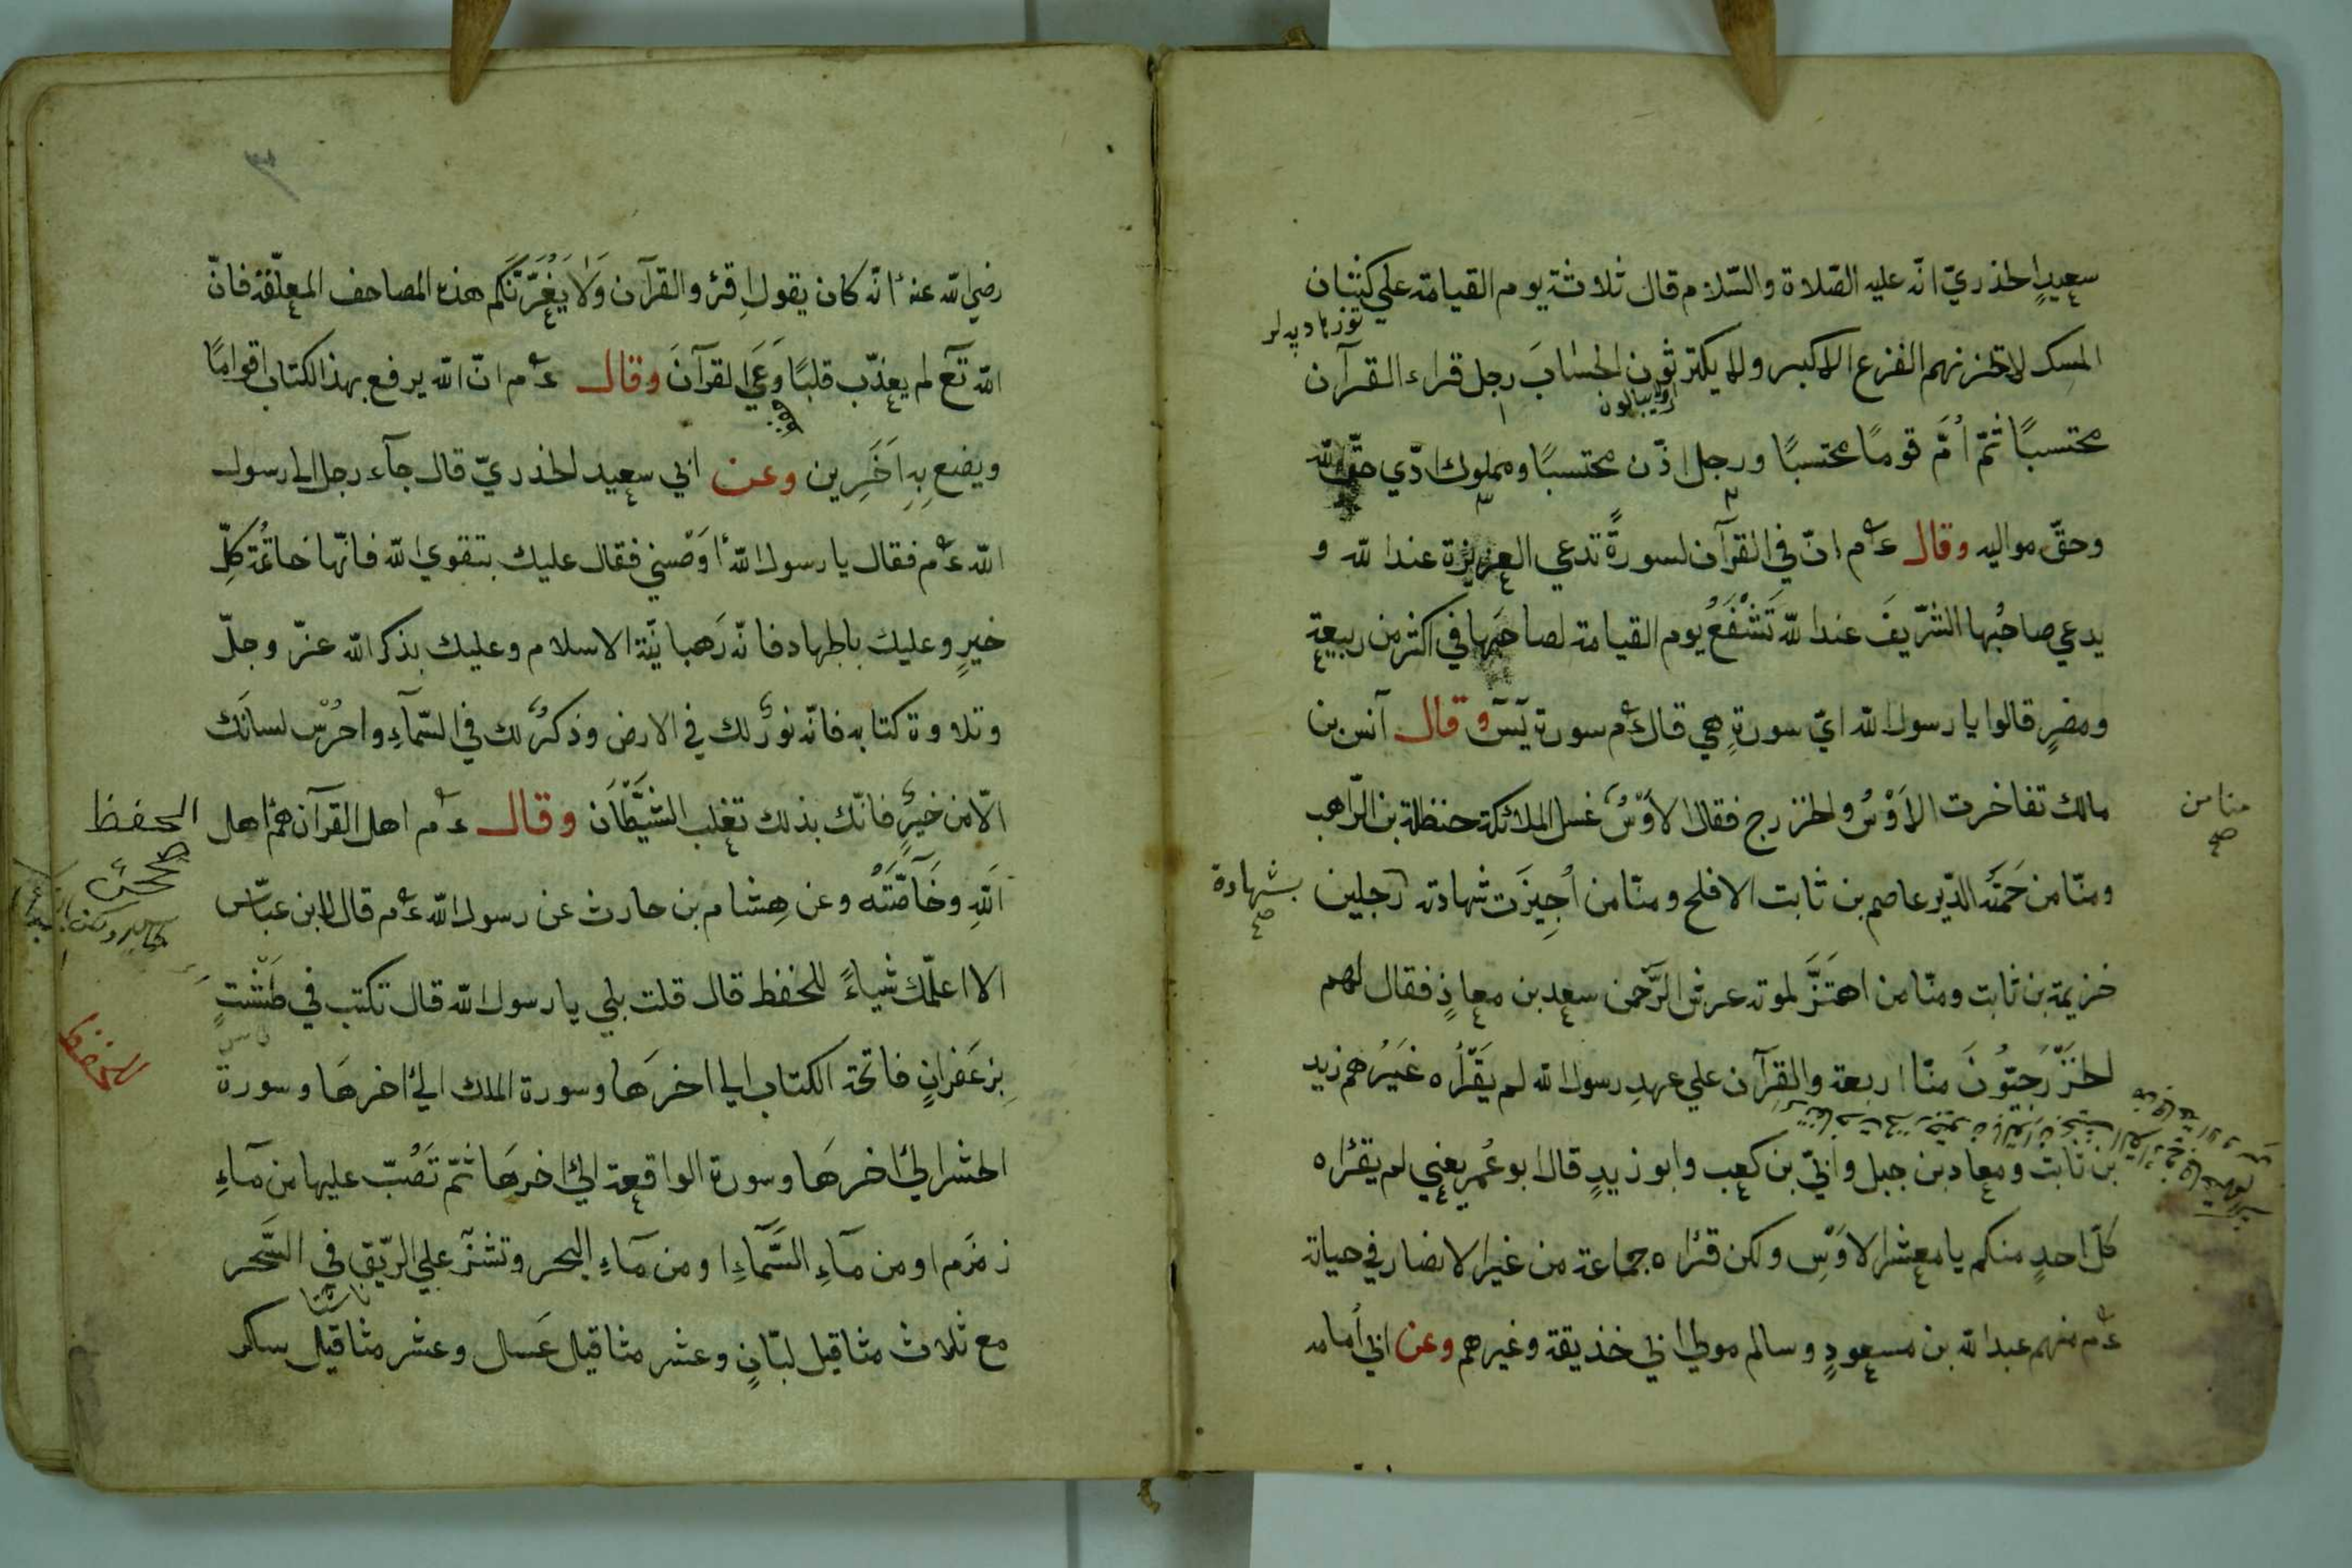 سعيدٍ الخذريّ انّه عليه الصّلاة والسّلام قال ثلاثة يوم القيامة علي كثبان
المسك لا تحزنهم الفزع الاكبر ولا يكترثون الحساب رجل قراء القرآن
محتسبًا ثمّ اُمَّ قومًا محتسبًا ورجل اذّن محتسبًا ومملوك ادّي حقّ الله
وحقّ مواليه وقال عم انّ في القرآن لسورةً تدعي العزيزة عند الله و
يدعي صاحبُها الشّريفَ عند الله تَشْفَعُ يوم القيامة لصاحبها في اكثر من ربيعة
ومضرٍ قالوا يا رسول الله ايّ سورةٍ هي قال عم سورة يٓسٓ وقال آنس بن
مالك تفاخرت الاَوْسُ والخزرج فقال الاَوْسُ غسل الملائكة حنظلة بن الرّاهب
منا من
صح
ومنّا من حَمَتْه الدّبر عاصم بن ثابت الافلح ومنّا من اُجِيزَت شهادته رجلين
بشهادة
صح
خزيمة بن ثابت ومنّا من اهتَزَّ لموته عرش الرّحمن سعد بن معاذٍ فقال لهم
الخَزْرَجيُّونَ منّا اربعة والقرآن علي عهدِ رسول الله لم يَقْرَأه غَيْرُهم زيد
بن ثابت ومعاد بن جبل وابيّ بن كعب وابو زيدٍ قال ابو عُمر يعني لم يقرٔاه
كلّ احدٍ منكم يا معشر الاَوْسِ ولكن قرٔاه جماعة من غير الانصار في حياة
عم منهم عبد الله بن مسعودٍ وسالم مولي ابي خذيقة وغيرهم وعن ابي اُمامه
رضي الله عنه انّه كان يقول اِقرؤ القرآن وَلاَ يَغُرَّنَّكم هذه المصاحف المعلّقة فانّ
الله تع لم يعذّب قلبًا وَعَي القرآنَ وقال عم انّ الله يرفع بهذا الكتاب اقوامًا
ويضع بِهِ اَخَرِين وعن ابي سعيد الخذريّ قال جآء رجل الي رسول
الله عم فقال يا رسول الله اَوْصني فقال عليك بتقوي الله فانّها خاتمة كلِّ
خيرٍ وعليك بالجهاد فانّه رَهبانيّة الاسلام وعليك بذكر الله عزّ وجلّ
وتلاوة كتابه فانّه نورٌ لك في الارض وذكرٌ لك في السّمآءِ واحرُسْ لسانَك
الّا من خيرٍ فانّك بذلك تغلب الشّيطَان وقال عم اهل القرآن هم اهل
الحفظ
اَللهِ وخَآصَّتُهْ وعن هِشام بن حارث عن رسول الله عم قال لابن عبّاس
الا اعلّمك شياءً للحفظ قال قلت بلي يا رسول الله قال تكتب في طَشْتٍ
للحفظ
بِزعَفرانٍ فاتحة الكتاب الي اخرَها وسورة الملك الي اخرهَا وسورة
الحشر الي اخرهَا وسورة الواقعة الي اخرهَا ثمّ تَصُبّ عليها من مآءِ
زمزم او من مآءِ السَّمآءِ او من مآءِ البحر وتشرَب علي الرّيق في السَّحر
مع ثلاث مثاقيل لبّانٍ وعشر مثاقيل عَسال وعشر مثاقيل سكر